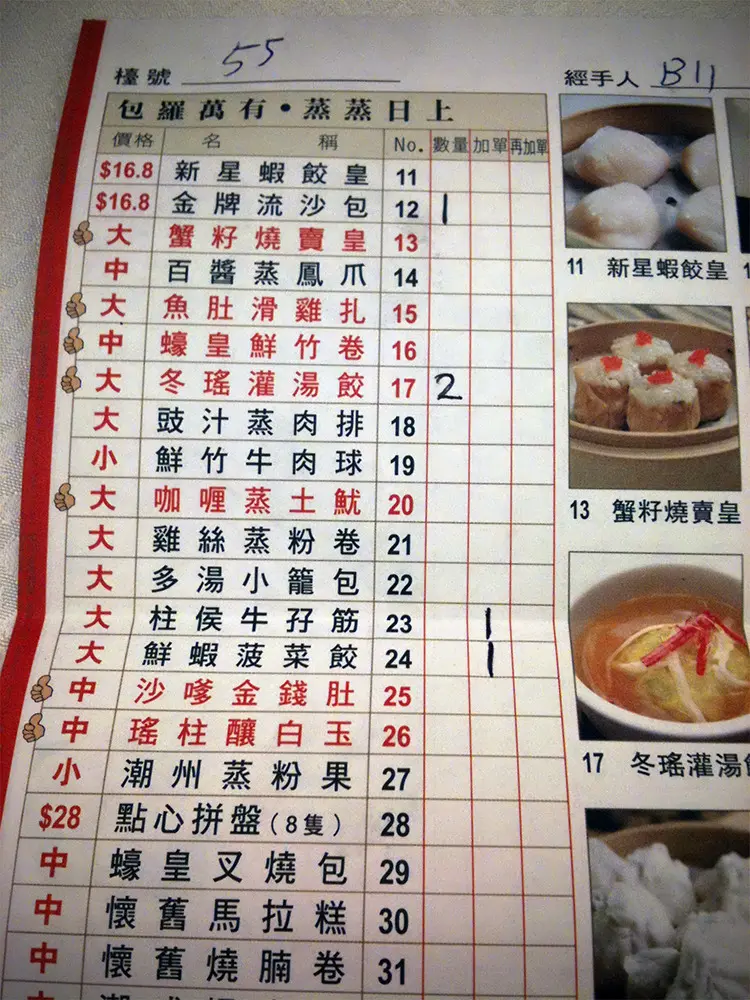 檯號 55
經手人 Bill
包羅萬有•蒸蒸日上
價格 名稱 No. 數量 加單 再加單
$16.8 新星蝦餃皇 11
$16.8 金牌流沙包 12 1
大 蟹籽燒賣皇 13
中 百醬蒸鳳爪 14
大 魚肚滑雞扎 15
中 蠔皇鮮竹卷 16
大 冬瑤灌湯餃 17 2
大 豉汁蒸肉排 18
小 鮮竹牛肉球 19
大 咖喱蒸土魷 20
大 雞絲蒸粉卷 21
大 多湯小籠包 22
大 柱侯牛孖筋 23 1
大 鮮蝦菠菜餃 24 1
中 沙嗲金錢肚 25
中 瑤柱釀白玉 26
小 潮州蒸粉果 27
$28 點心拼盤(8隻) 28
中 蠔皇叉燒包 29
中 懷舊馬拉糕 30
中 懷舊燒腩卷 31
11 新星蝦餃皇
13 蟹籽燒賣皇
17 冬瑤灌湯